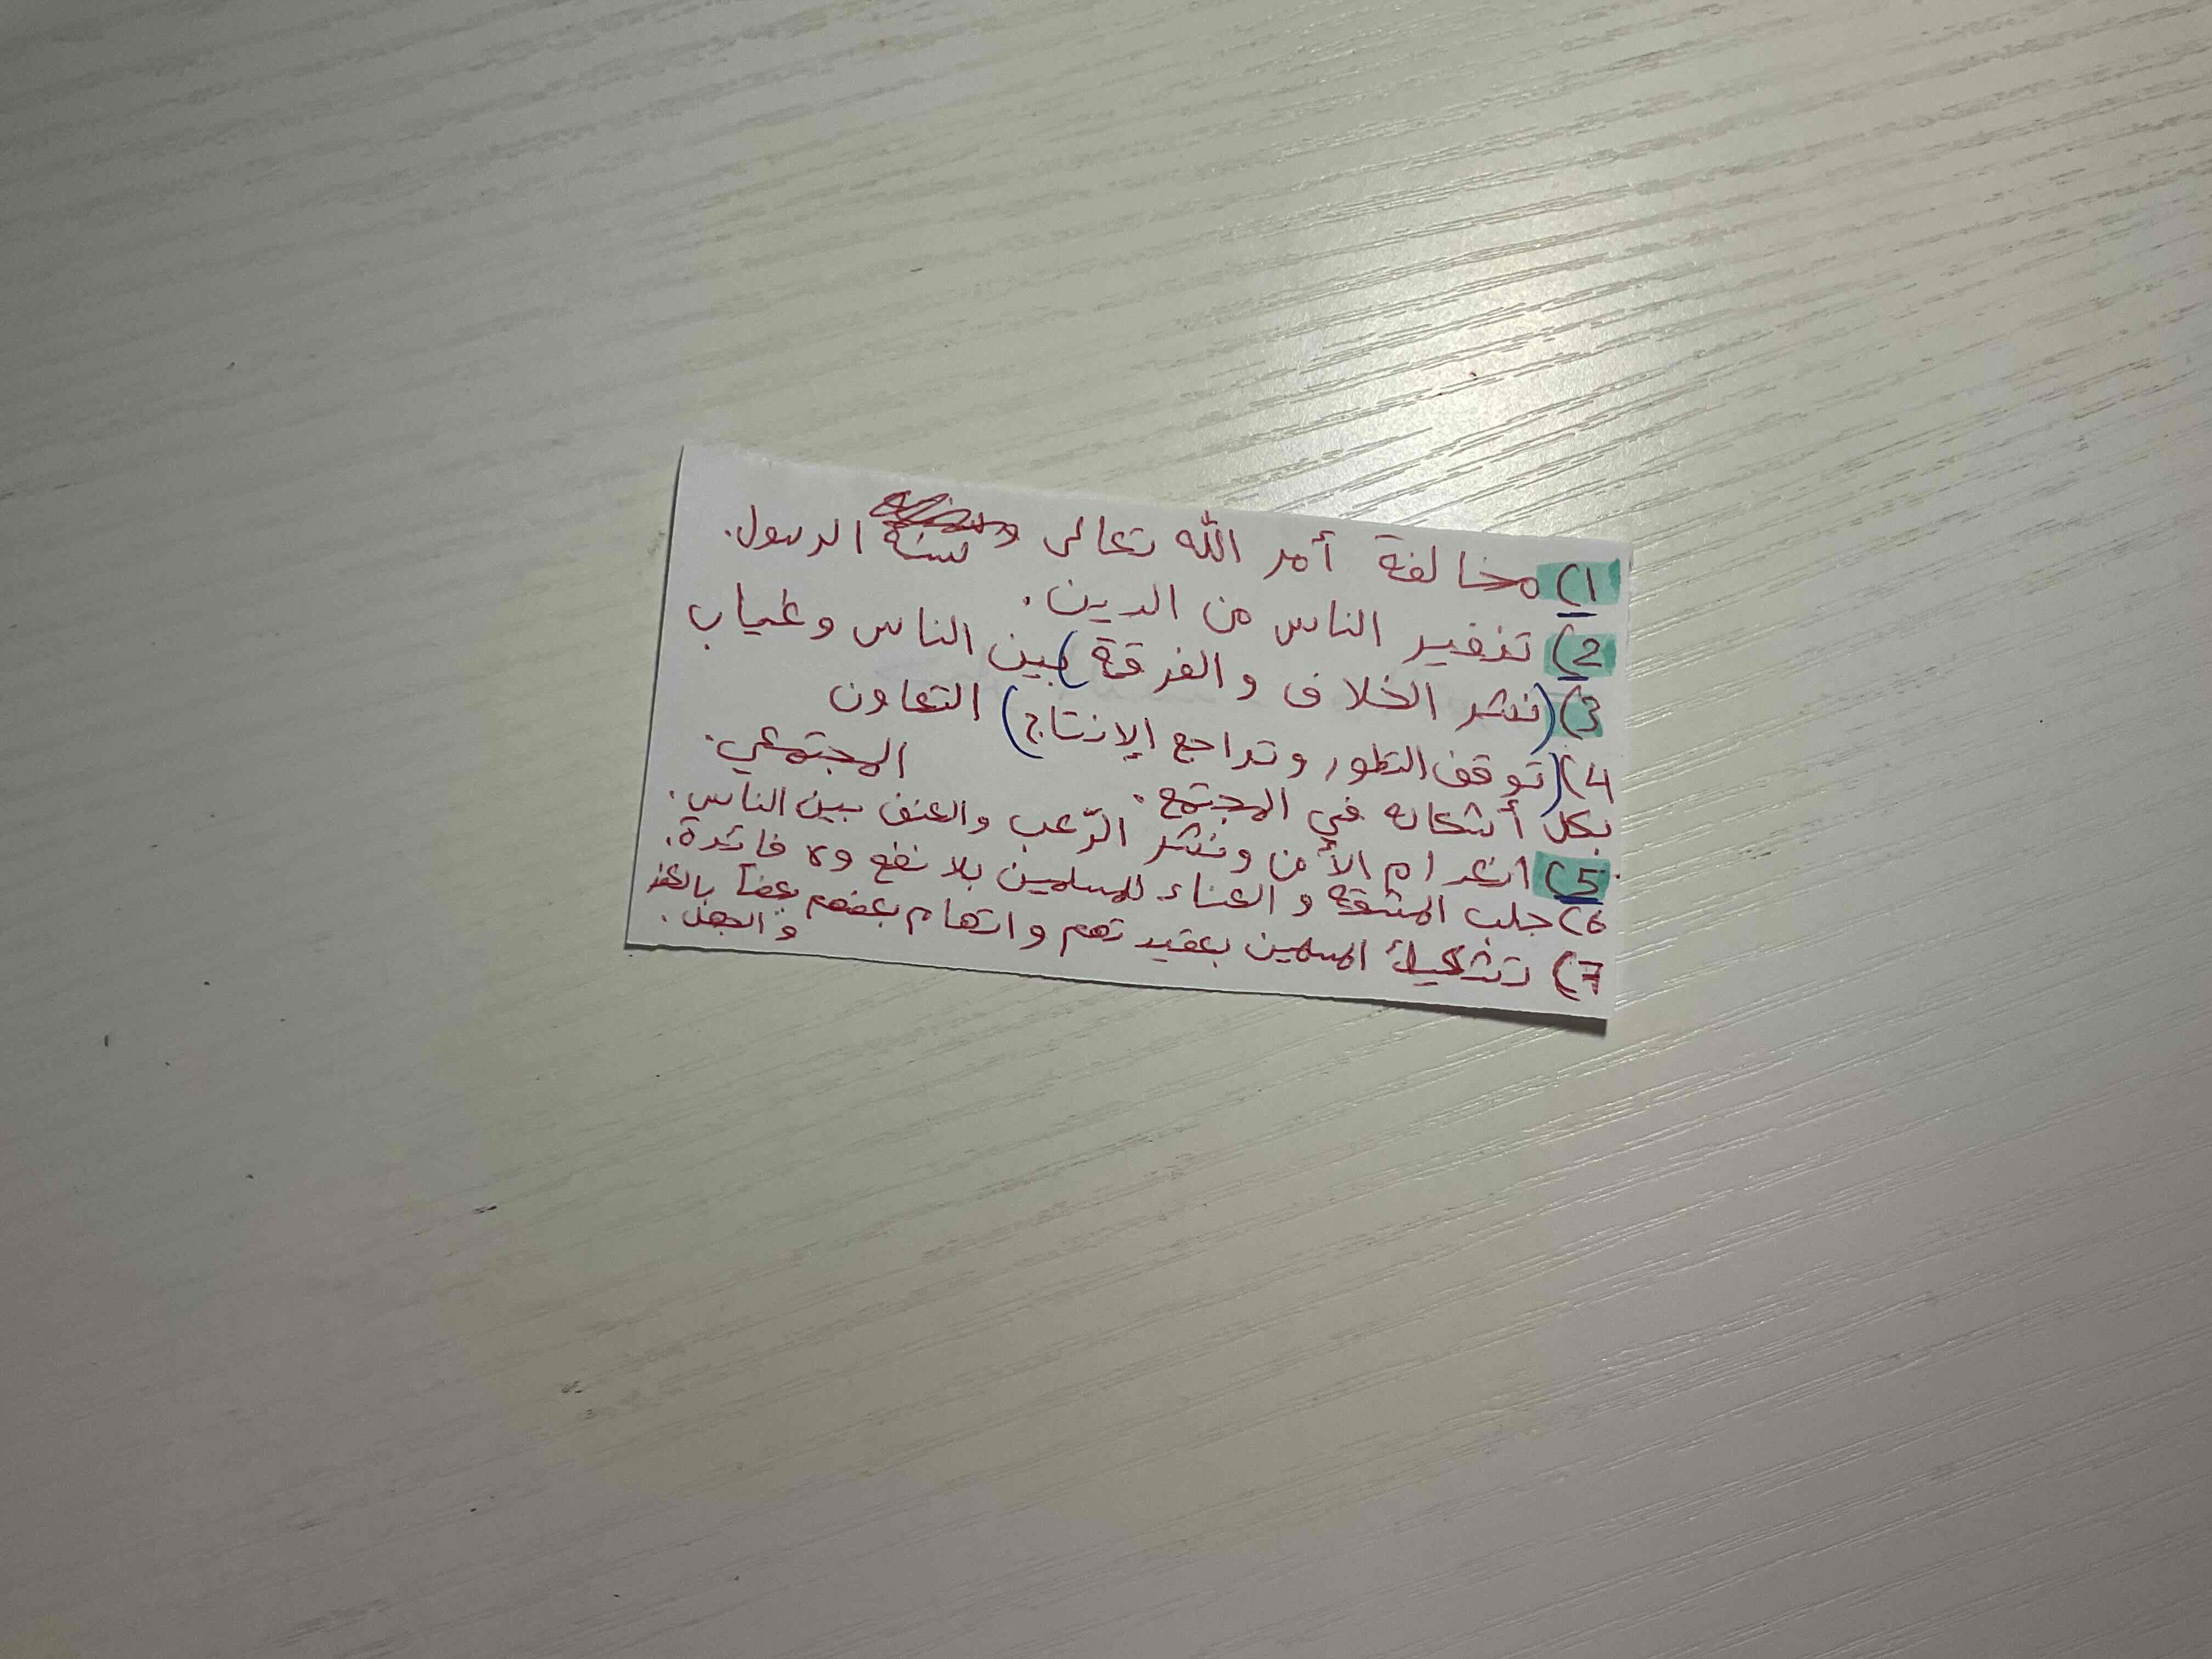 1) مخالفة أمر الله تعالى وسنة الرسول.
2) تنفير الناس من الدين.
3) (نشر الخلاف والفرقة) بين الناس وغياب
التعاون
المجتمعي.
4) (توقف التطور وتراجع الإنتاج)
بكل أشكاله في المجتمع.
5) انعدام الأمن ونشر الرّعب والعنف بين الناس.
6) جلب المشقة والعناء للمسلمين بلا نفع ولا فائدة.
7) تشكيك المسلمين بعقيدتهم واتهام بعضهم بعضاً
والجهل.